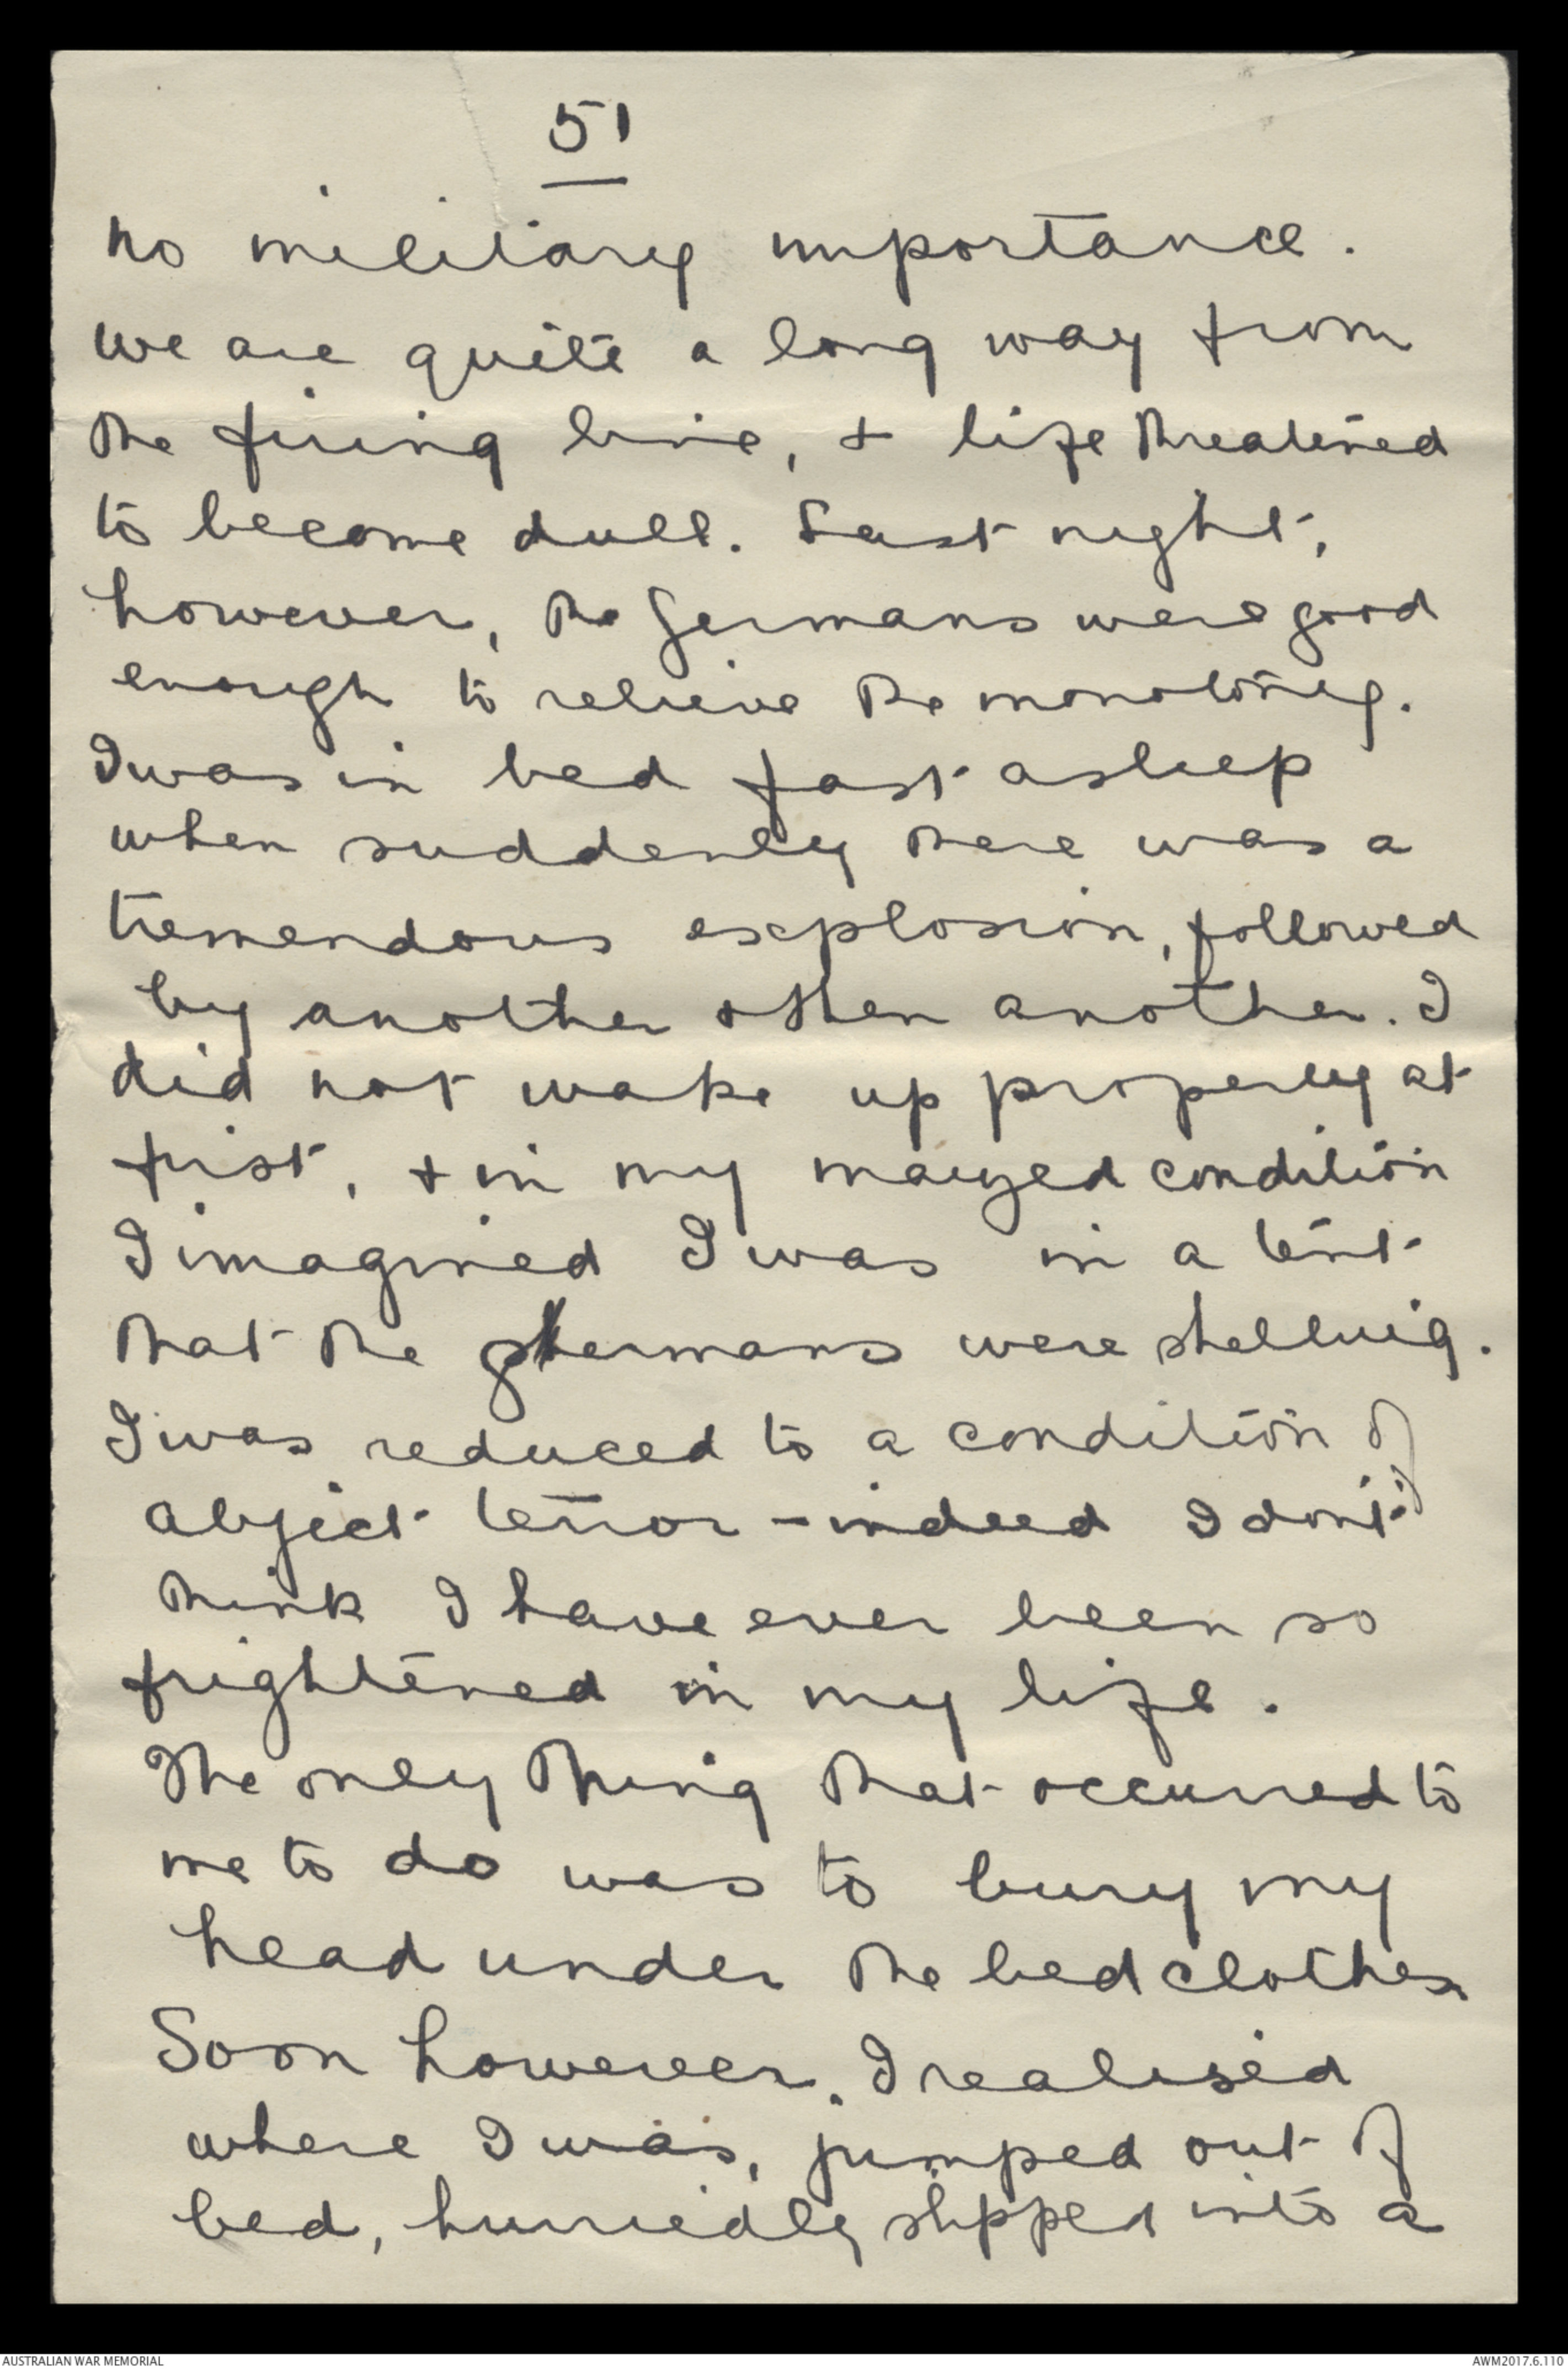 51
no military importance.
we are quite a long way from
the firing line, + life threatened
to become dull. Last night,
however, the Germans were good
enough to relieve the monotony.
I was in bed fast asleep
when suddenly there was a
tremendous explosion, followed
by another + then another. I
did not wake up properly at
first, + in my mazed condition
I imagined I was in a tent
that the Germans were shelling.
I was reduced to a condition of
abject terror - indeed I don't
think I have ever been so
frightened in my life.
The only thing that occurred to
me to do was to bury my
head under the bedclothes
Soon however, I realised
where I was, jumped out of
bed, hurriedly slipped into a
AUSTRALIAN WAR MEMORIAL
AWM2017.6.110